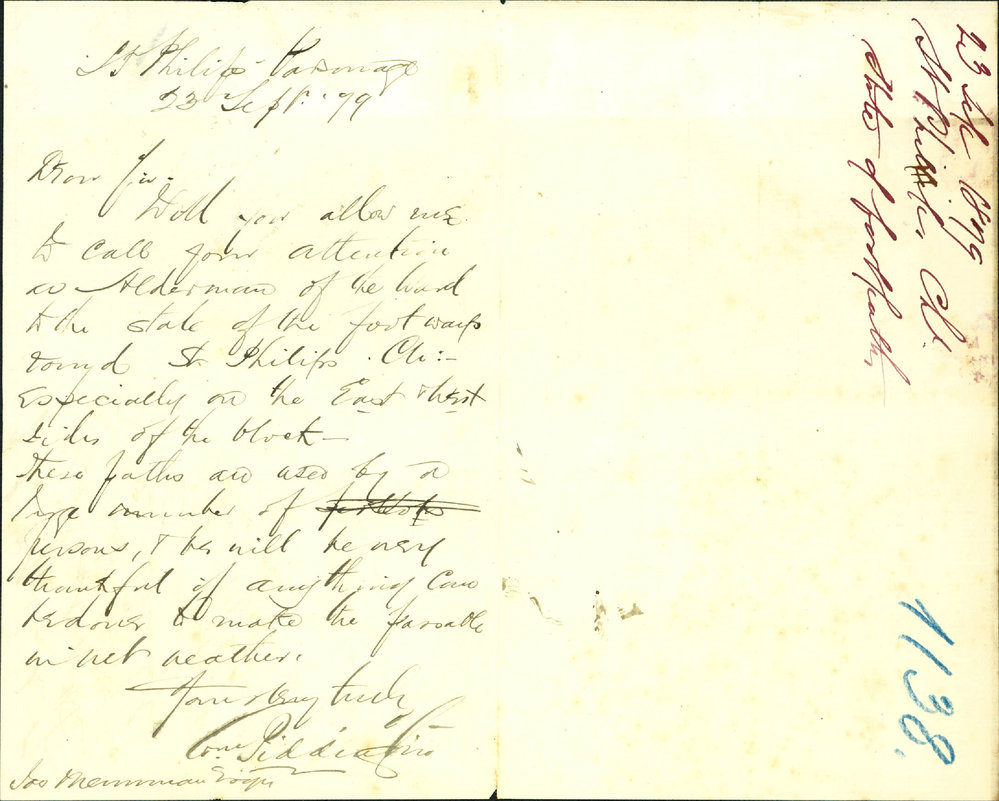 St Philips Parsonage
23 Sept. '79
Dear Sir.
Will you allow me
to call your attention
as Alderman of the Ward
to the state of the footways
round St. Philips Ch:-
especially on the East & West
sides of the block -
These paths are used by a
large number of
persons, & they will be very
thankful if anything can
be done to make the passable
in wet weather.
Yours very truly
Wm. Piddington
Jas Merriman Esqr
23 Sept 1879
St Philips Ch.
State of footpaths
1138.